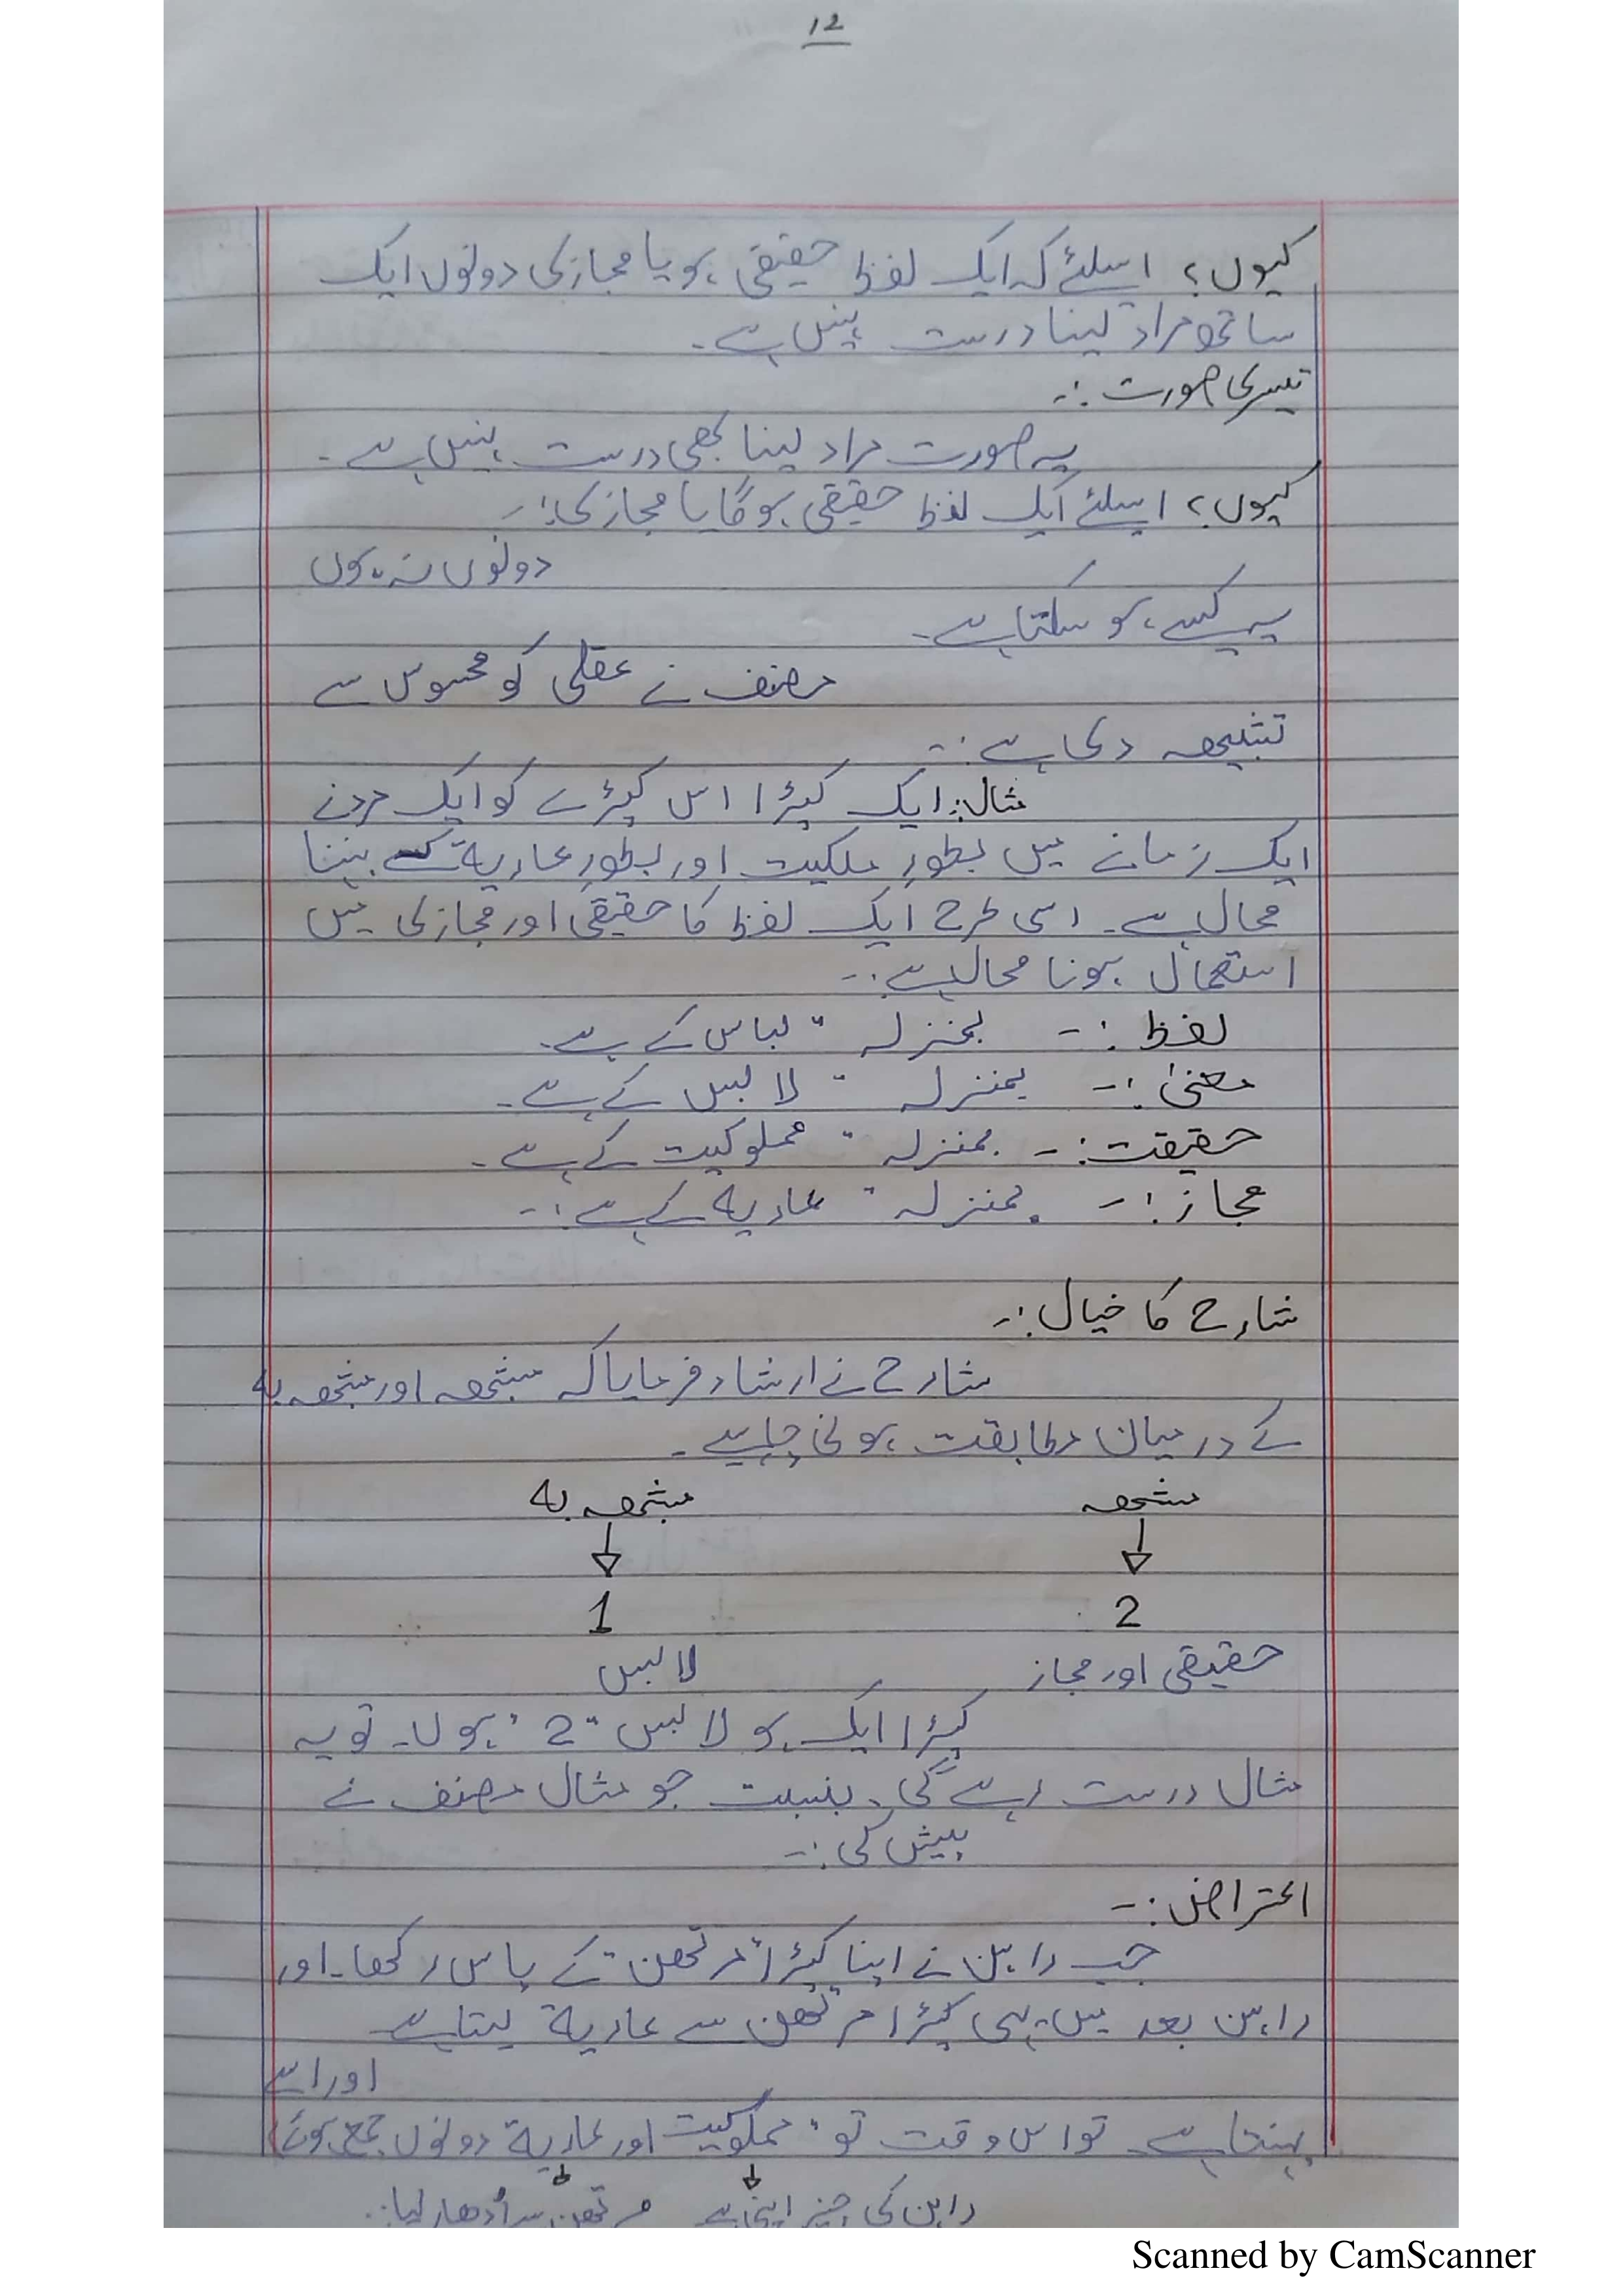 12
کیوں؟ اسلئے کہ ایک لفظ حقیقی ہو یا مجازی دونوں ایک
ساتھ مراد لینا درست نہیں ہے۔
تیسری صورت :۔
یہ صورت مراد لینا بھی درست نہیں ہے۔
کیوں؟ اسلئے ایک لفظ حقیقی ہوگا یا مجازی:۔
دونوں نہ ہوں
یہ کیسے ہو سکتا ہے۔
مصنف نے عقلی کو محسوس سے
تشبیھہ دی ہے:۔
مثال: ایک کپڑا اس کپڑے کو ایک مرد نے
ایک زمانے میں بطورِ ملکیت اور بطورِ عاریۃ کے پہننا
محال ہے۔ اسی طرح ایک لفظ کا حقیقی اور مجازی میں
استعمال ہونا محال ہے:۔
لفظ :۔ بمنزلہ " لباس کے ہے۔
معنیٰ :۔ بمنزلہ " لابس کے ہے۔
حقیقت :۔ بمنزلہ " مملوکیت کے ہے۔
مجاز :۔ بمنزلہ " عاریۃ کے ہے:۔
شارح کا خیال :۔
شارح نے ارشاد فرمایا کہ مشبھہ اور مشبھہ بہ
کے درمیان مطابقت ہونی چاہیے۔
مشبھہ مشبھہ بہ
2 1
حقیقی اور مجاز لابس
کپڑا ایک ہو لابس "2" ہوں۔ تو یہ
مثال درست رہے گی۔ بنسبت جو مثال مصنف نے
پیش کی:۔
اعتراض :۔
جب راہن نے اپنا کپڑا مرتھن کے پاس رکھا۔ اور
راہن بعد میں یہی کپڑا مرتھن سے عاریۃ لیتا ہے
اور اسے
پہنتا ہے۔ تو اس وقت تو مملوکیت اور عاریۃ دونوں جمع ہوئے
راہن کی چیز اپنی ہے مرتھن سے اُدھار لیا:۔